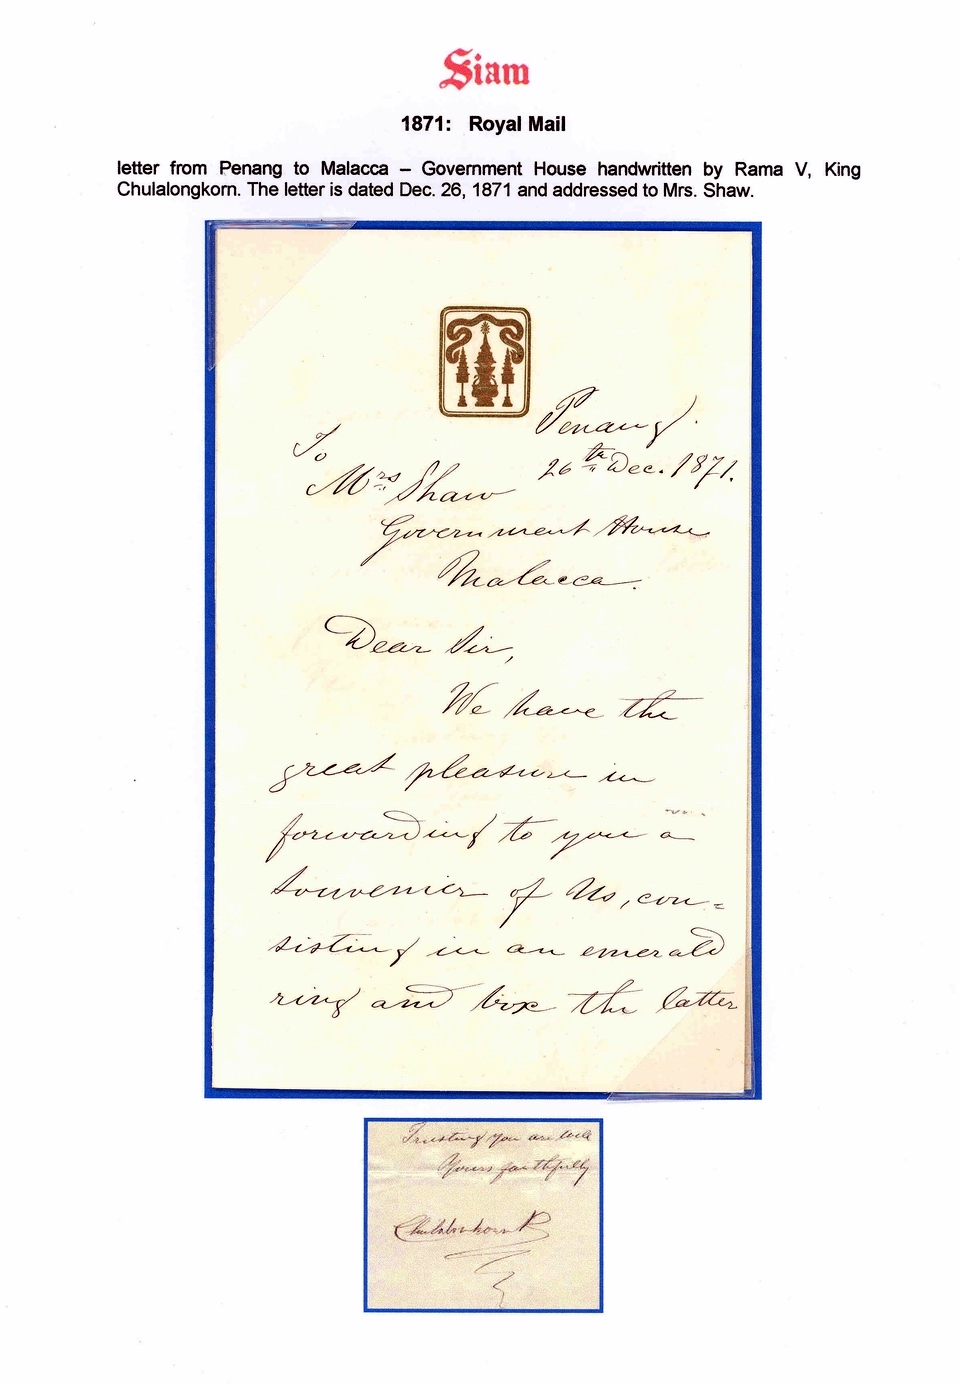 Siam
1871: Royal Mail
letter from Penang to Malacca – Government House handwritten by Rama V, King
Chulalongkorn. The letter is dated Dec. 26, 1871 and addressed to Mrs. Shaw.
Penang.
26th Dec. 1871.
To
Mrs Shaw
Government House
Malacca.
Dear Sir,
We have the
great pleasure in
forwarding to you a
souvenier of Us, con=
sisting in an emerald
ring and box the latter
Trusting you are well
Yours faithfully
Chulalonkorn R